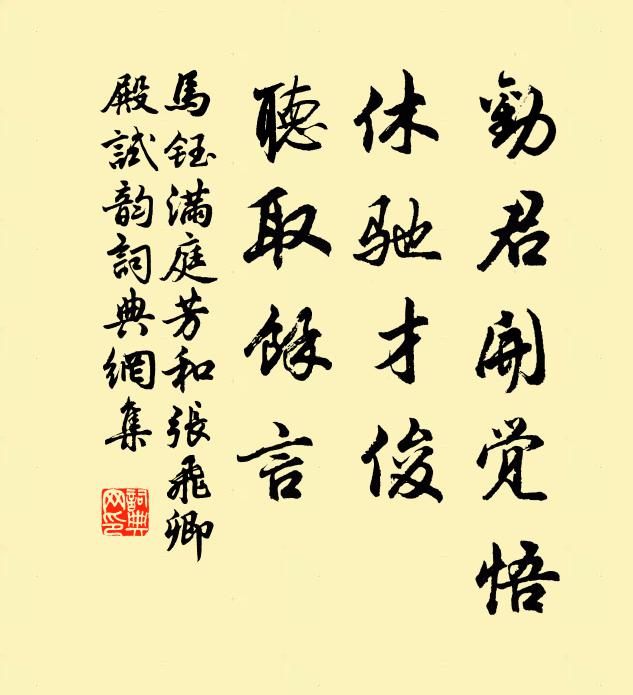 勸君開覚悟
休馳才俊
聽取餘言
馬鈺满庭芳和張飛卿
殿試韵詞典網集
詞典
网印